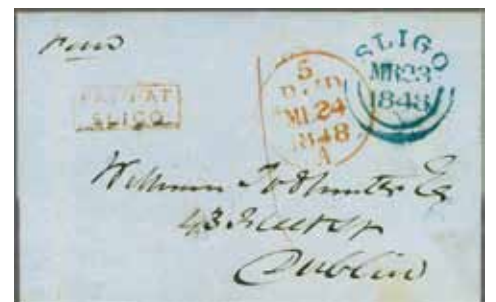 Paid
PAID AT
SLIGO
5
PAID
MR 24
1848
A
SLIGO
MR 23
1848
William Todhunter Esq
43
Dublin